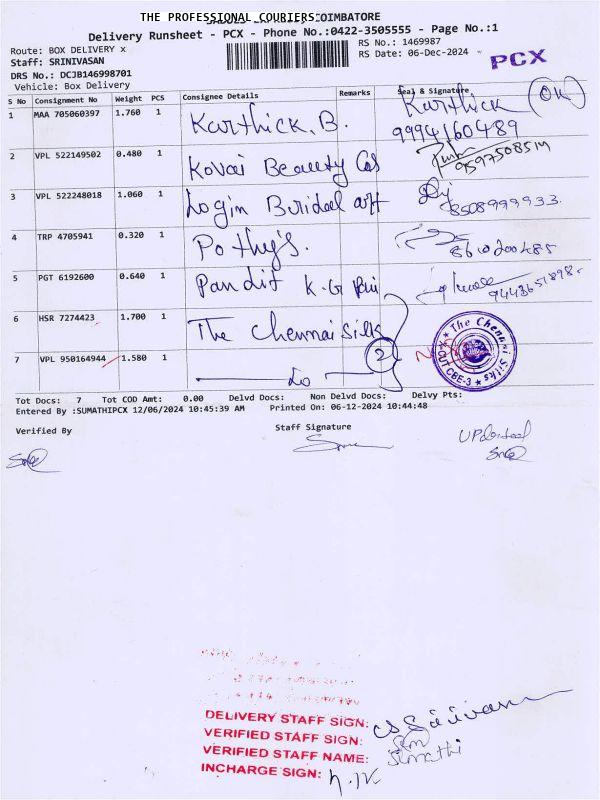 THE PROFESSIONAL COURIERS COIMBATORE
Delivery Runsheet - PCX - Phone No.:0422-3505555 - Page No.:1
Route: BOX DELIVERY x
RS No.: 1469987
Staff: SRINIVASAN
RS Date: 06-Dec-2024
PCX
DRS No.: DCJB146998701
Vehicle: Box Delivery
S No Consignment No Weight PCS Consignee Details Remarks Seal & Signature
1 MAA 705060397 1.760 1 Karthick. B. Karthick OK
9994160489
2 VPL 522149502 0.480 1 Kovai Beauty Cos
9597508514
3 VPL 522248018 1.060 1 Login Bridal art
8508999933.
4 TRP 4705941 0.320 1 Pothy's.
8610200485
5 PGT 6192600 0.640 1 Pandit K.G
9443651898-
6 HSR 7274423 1.700 1 The Chennai Silks
The Chennai Silks
CBE-3
7 VPL 950164944 1.580 1 Do 2
Tot Docs: 7 Tot COD Amt: 0.00 Delvd Docs: Non Delvd Docs: Delvy Pts:
Entered By :SUMATHIPCX 12/06/2024 10:45:39 AM Printed On: 06-12-2024 10:44:48
Verified By
Staff Signature
Updated
DELIVERY STAFF SIGN:
VERIFIED STAFF SIGN:
VERIFIED STAFF NAME: Sumathi
INCHARGE SIGN: